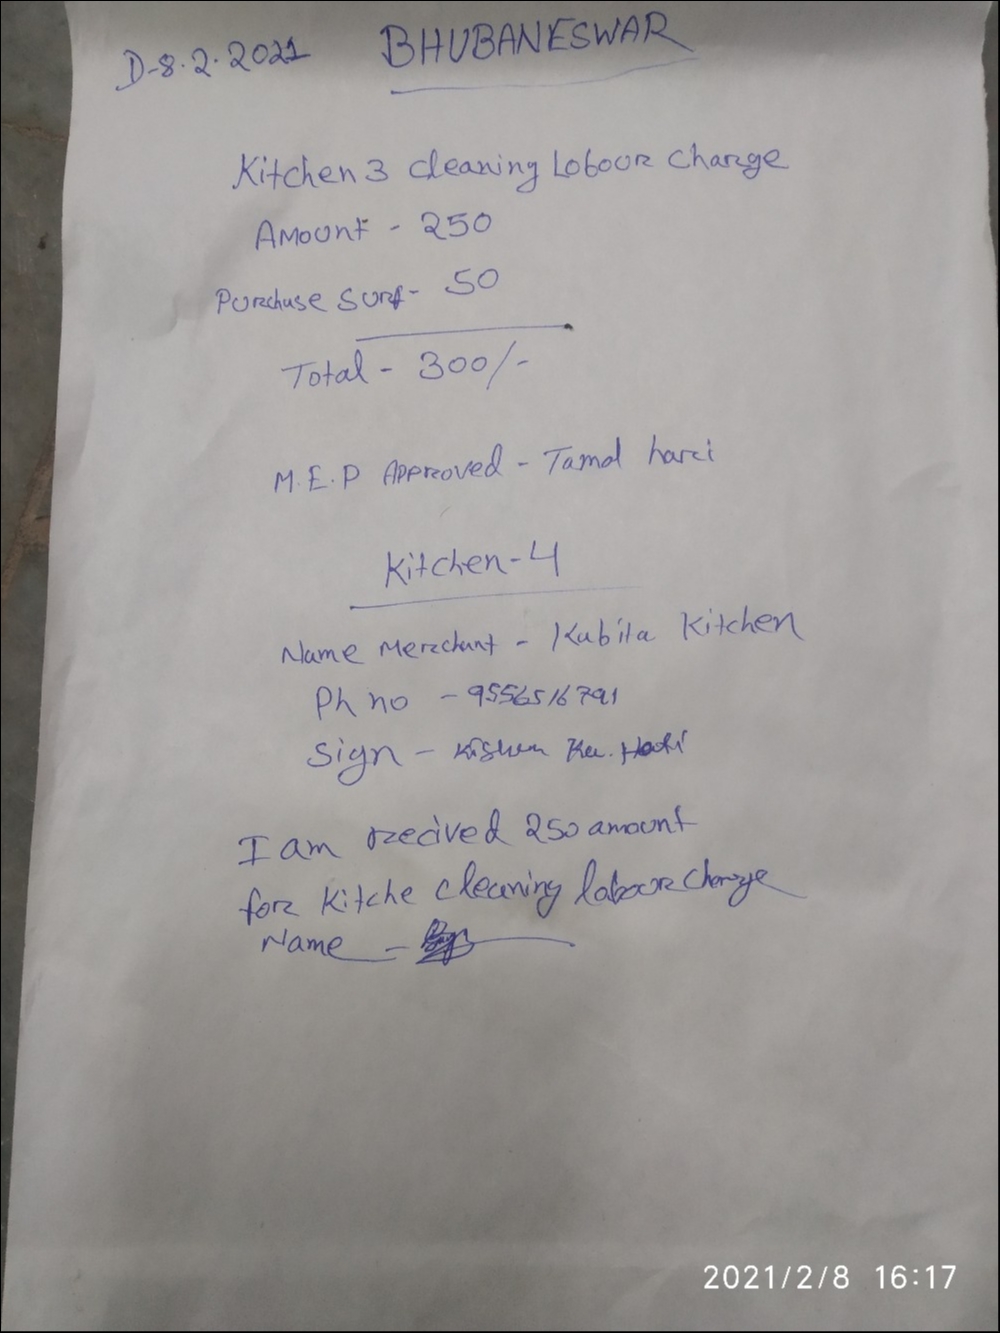 D-8.2.2021 BHUBANESWAR
Kitchen 3 cleaning Lobour charge
Amount - 250
Purchase surf - 50
Total - 300/-
M.E.P Approved - Tamal hari
Kitchen-4
Name Merchant - Kabita Kitchen
Ph no - 9556516791
Sign - Kishor Ku.
I am recived 250 amount
for Kitche cleaning labour charge
Name -
2021/2/8 16:17